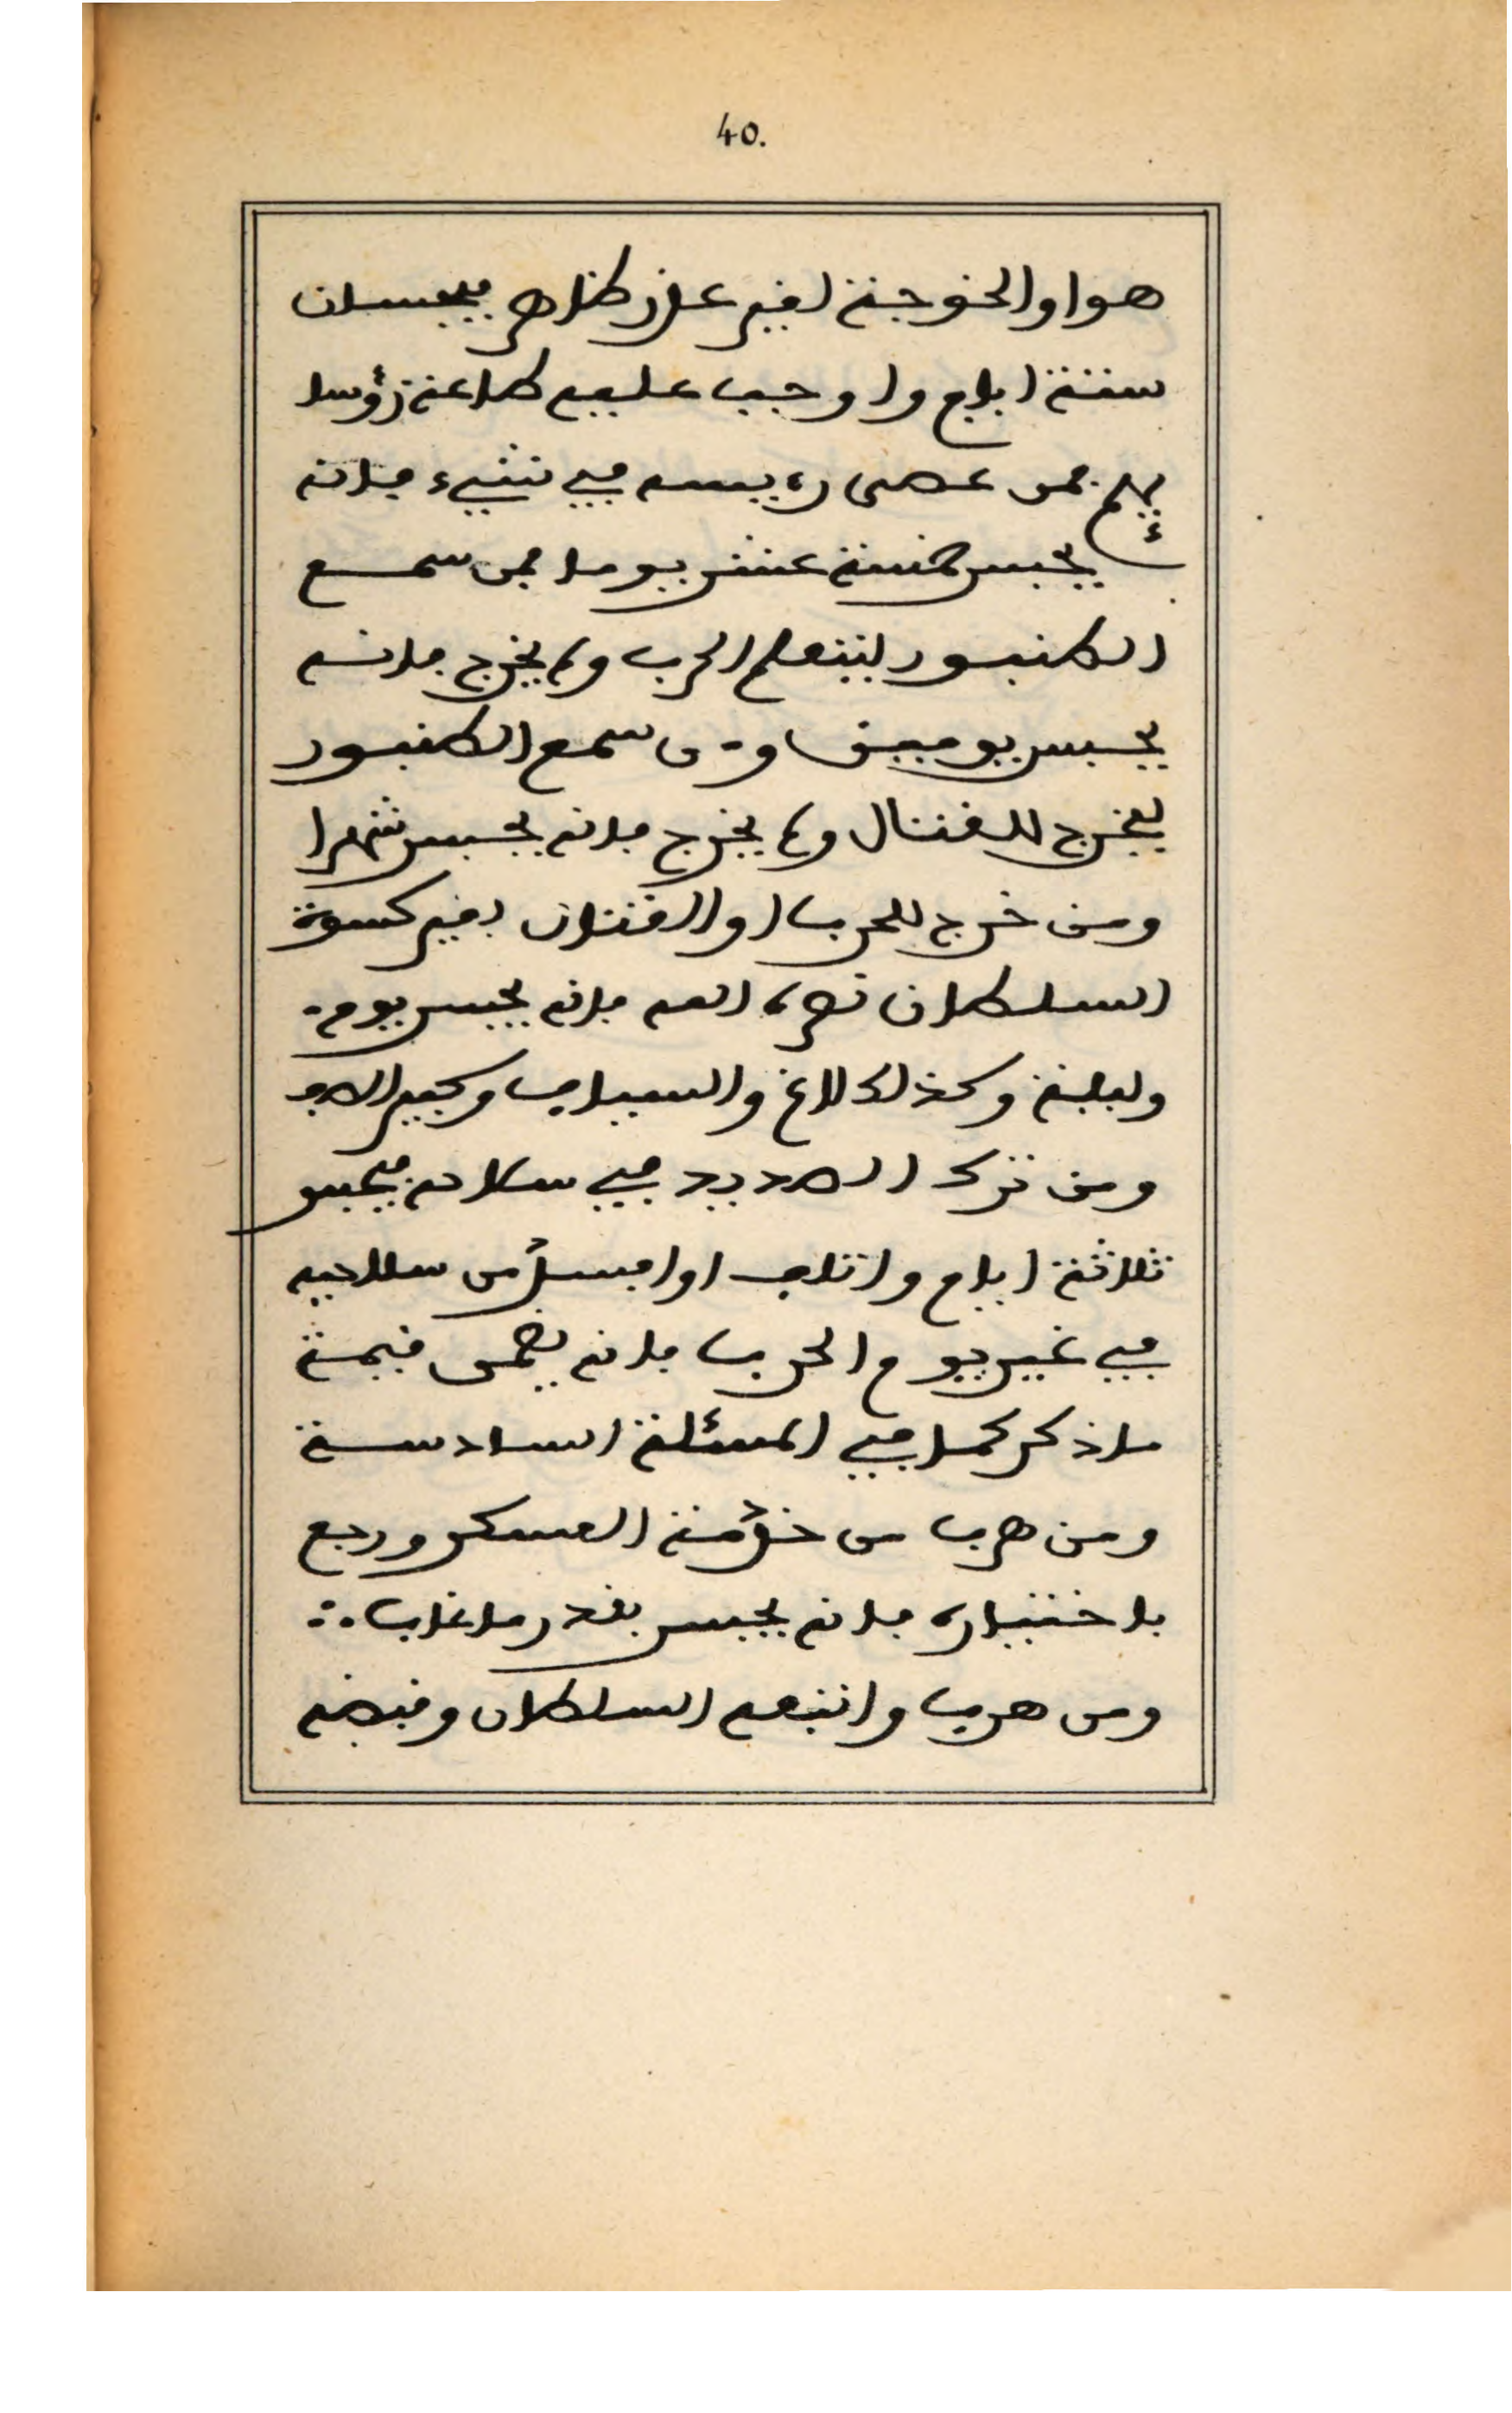 40.
هو او الخوجة لغير عذر ظاهر فيحبسان
ستة ايام واوجب عليهم طاعة رؤسا
ئهم فمن عصى رئيسه في شيء فانه
يحبس خمسة عشر يوما فمن سمع
الطنبور ليتعلم الحرب ولم يخرج فانه
يحبس يومين ومن سمع الطنبور
ليخرج للقتال ولم يخرج فانه يحبس شهرا
ومن خرج للحرب او القتال بغير كسوة
السلطان نصره الله فانه يحبس يوم
وليلة وكذلك الاغ والسياف وكبير الصف
ومن ترك الصديد في سلاحه فيحبس
ثلاثة ايام واتلف او افسد من سلاحه
في غير يوم الحرب فانه يضمن قيمة
ما ذكر كما في المسئلة السادسة
ومن هرب من خدمة العسكر ورجع
باختياره فانه يحبس بقدر ما غاب
ومن هرب واتبعه السلطان وقبضه